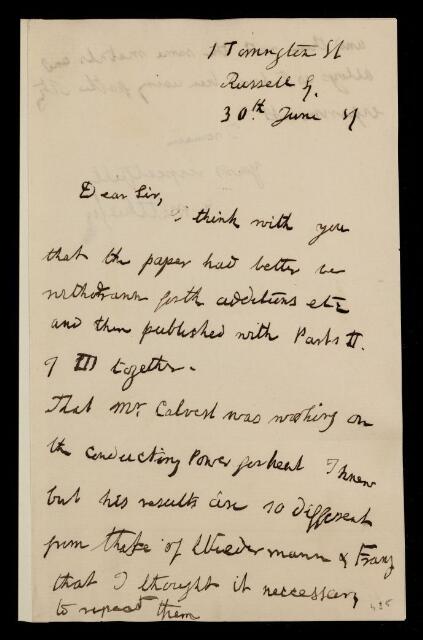 1 Torrington St
Russell Sq.
30th June 57
Dear Sir,
I think with you
that the paper had better be
withdrawn for the additions etc
and then published with Parts II.
& III together.
That Mr. Calvert was working on
the conducting Power for heat I knew
but his results are so different
from those of Wiedermann & Franz
that I thought it necessary
to repeat them